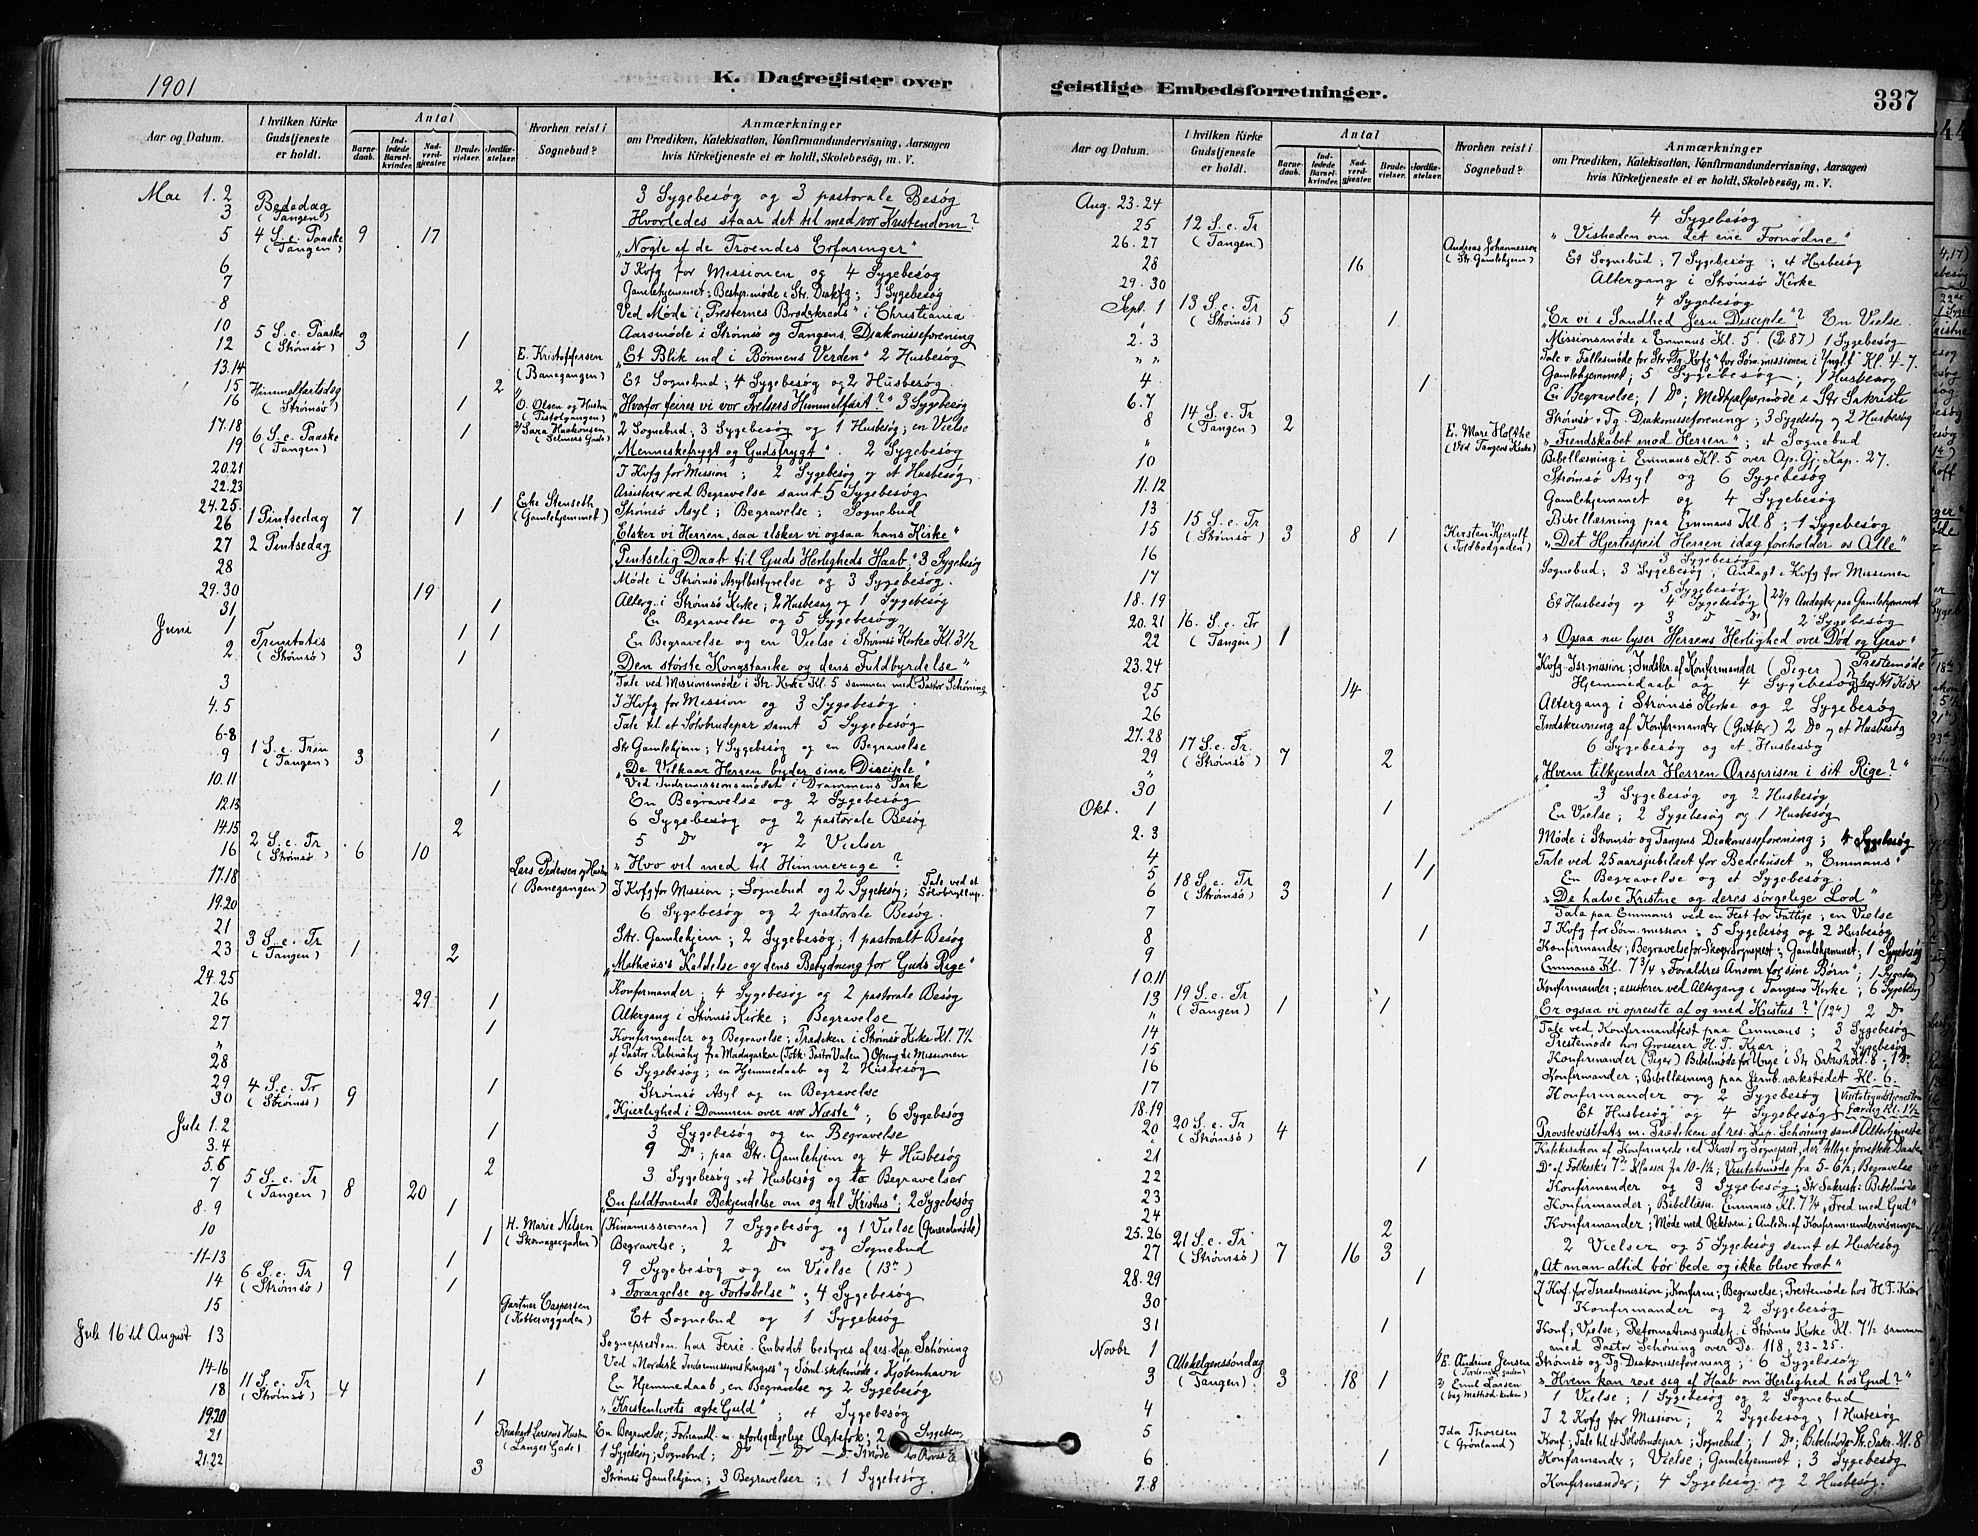 1901
K. Dagregister over
Aar og Datum.
I hvilken Kirke Gudstjeneste er holdt.
Antal
Barnedaab.
Indledede Barselkvinder.
Nadverdgjester.
Brudevielser.
Jordfæstelser.
Hvorhen reist i Sognebud?
Anmærkninger
om Prædiken, Katekisation, Konfirmandundervisning, Aarsagen
hvis Kirketjeneste ei er holdt, Skolebesøg, m. V.
Mai 1.2 3 Sygebesøg og 3 pastorale Besøg
3 Bededag (Tangen) Hvorledes staar det til med vor Kristendom?
5 4 S. e. Paaske (Tangen) 9 17 "Nogle af de Troendes Erfaringer"
6 I Kvfg for Missionen og 4 Sygebesøg
7 Gamlehjemmet; Bestyr.møde i Str. Diakfg; 3 Sygebesøg
8 Ved Møde i "Presternes Brodekreds" i Christiania
10 Aarsmøde i Strømsø og Tangens Diakonisseforening
12 5 S. e. Paaske (Strømsø) 3 1 "Et Blik ind i Bønnens Verden" 2 Husbesøg
13.14 E. Kristoffersen (Banegangen) Et Sognebud; 4 Sygebesøg og 2 Husbesøg
15 2
16 Himmelfartsdag (Strømsø) 1 O. Olsen og Hustru (Pistolgangen) "Hvorfor feires vi vor Frelsers Himmelfart?" 3 Sygebesøg
17.18 1 Sara Haakonsen (Selmers Gade) 2 Sognebud; 3 Sygebesøg og 1 Husbesøg; en Vielse
19 6 S. e. Paaske (Tangen) "Menneskefrygt og Gudsfrygt". 2 Sygebesøg
20.21 I Kvfg for Mission; 2 Sygebesøg og et Husbesøg
22.23 Assisterer ved Begravelse samt 5 Sygebesøg
24.25. 1 Enke Stenseth (Gamlehjemmet) Strømsø Asyl; Begravelse; Sognebud
26 1 Pintsedag 7 1 "Elsker vi Herren, saa elsker vi ogsaa hans Kirke"
27 2 Pintsedag "Pintselig Daab til Guds Herligheds Haab"; 3 Sygebesøg
28 Møde i Strømsø Asylbestyrelse og 3 Sygebesøg.
29.30 19 Alterg. i Strømsø Kirke; 2 Husbesøg og 1 Sygebesøg
31 1 En Begravelse og 5 Sygebesøg
Juni 1 1 1 En Begravelse og en Vielse i Strømsø Kirke Kl. 3½
2 Trinitatis (Strømsø) 3 1 "Den største Kongstanke og dens Fuldbyrdelse"
3 Tale ved Missionsmøde i Str. Kirke Kl. 5 sammen med Pastor Schøning
4.5 I Kvfg for Mission og 3 Sygebesøg.
6-8 1 Tale til et Sølvbrudepar samt 5 Sygebesøg
Str Gamlehjem; 4 Sygebesøg og en Begravelse
9 1 S. e. Trin (Tangen) 3 "De Vilkaar Herren byder sine Disciple"
10.11 1 Ved Indremissionsmødet i Drammens Park
12.13 En Begravelse og 2 Sygebesøg
14.15 2 6 Sygebesøg og 2 pastorale Besøg
5 Do og 2 Vielser
16 2 S. e. Tr (Strømsø) 6 10 "Hvo vil med til Himmerige?
17.18 Lars Pedersen og Hustru (Banegangen) I Kvfg for Mission; Sognebud og 2 Sygebesøg; Tale ved et Sølvbryllup.
19.20 6 Sygebesøg og 2 pastorale Besøg.
21 Str. Gamlehjem; 2 Sygebesøg; 1 pastoralt Besøg
23 3 S. e. Tr (Tangen) 1 2 "Mathæus's Kaldelse og dens Betydning for Guds Rige"
24.25 Konfirmander; 4 Sygebesøg og 2 pastorale Besøg
26 29 1 Altergang i Strømsø Kirke; Begravelse
27 1 Konfirmander og Begravelse; Prædiken i Strømsø Kirke Kl. 7½
" af Pastor Rabinahy fra Madagaskar (Tolk: Pastor Valen) Ofring til Missionen
28 6 Sygebesøg; en Hjemmedaab og 2 Husbesøg
29 1 Strømsø Asyl og en Begravelse
30 4 S. e. Tr (Strømsø) 9 "Kjærlighed i Dommen over vor Næste"; 6 Sygebesøg
Juli 1.2 1 3 Sygebesøg og en Begravelse
3.4 9 Do; paa Str. Gamlehjem og 4 Husbesøg
5.6 2 3 Sygebesøg, et Husbesøg og to Begravelser
7 5 S. e. Tr (Tangen) 8 20 "En fuldtonende Bekjendelse om og til Kristus"; 2 Sygebesøg
8.9 1 (Kinamissionen) 7 Sygebesøg og 1 Vielse (Generalmøde)
10 1 H. Marie Nilsen (Skomagergaden) Begravelse; 2 Do og Sognebud
11-13 1 9 Sygebesøg og en Vielse (13de)
14 6 S. e. Tr (Strømsø) 9 1 "Forargelse og Fortabelse"; 4 Sygebesøg
15 Gartner Caspersen (Kobbervigsgaden) Et Sognebud og 1 Sygebesøg
Juli 16 til August 13 Sognepresten har Ferie. Embedet bestyres af res. Kap. Schøning
14-16 Ved "Nordisk Indremissionskongres" og Sømlskolemøde i Kjøbenhavn
1 En Hjemmedaab, en Begravelse og 2 Sygebesøg
18 11 S. e. Tr (Strømsø) 4 "Kristenlivets ægte Guld"; et Sygebesøg
19.20 1 En Begravelse; Forhandl. m. uforligelige Ægtefolk; 2 Sygebesøg
21 Reinhart Larsens Hustru (Langes Gade) 1 Sygebesøg; Sognebud;
21.22 3 Strømsø Gamlehjem; 3 Begravelser; 1 Sygebesøg
geistlige Embedsforretninger.
337
Aar og Datum.
I hvilken Kirke Gudstjeneste er holdt.
Antal
Barnedaab.
Indledede Barselkvinder.
Nadverdgjester.
Brudevielser.
Jordfæstelser.
Hvorhen reist i Sognebud?
Anmærkninger
om Prædiken, Katekisation, Konfirmandundervisning, Aarsagen
hvis Kirketjeneste ei er holdt, Skolebesøg, m. V.
Aug. 23.24 4 Sygebesøg
25 12 S. e. Tr (Tangen) "Visheden om det ene Fornødne"
26.27 Andreas Johannessen (Str Gamlehjem) Et Sognebud; 7 Sygebesøg; et Husbesøg
28 16 Altergang i Strømsø Kirke
29.30 4 Sygebesøg
Sept. 1 13 S. e. Tr (Strømsø) 5 1 "Er vi i Sandhed Jesu Disciple"? En Vielse.
2.3 Missionsmøde i Emmaus Kl. 5. (Ps 87) 1 Sygebesøg
" " Tale v. Fællesmøde for Str Tg Kvfg for Søm.missionen i Ynglf Kl. 4-7.
4 1 Gamlehjemmet; 5 Sygebesøg; 1 Husbesøg
6.7 En Begravelse; 1 Do; Medhjælpermøde i Str Sakristi
8 14 S. e. Tr (Tangen) 2 Strømsø & Tg. Diakonisseforening; 3 Sygebesøg og 2 Husbesøg
" E. Mari Holthe (Ved Tangens Kirke) "Fiendskabet mod Herren"; et Sognebud
10 Bibellæsning i Emmaus Kl. 5 over Ap. Gj. Kap. 27.
11.12 Strømsø Asyl og 6 Sygebesøg
13 Gamlehjemmet og 4 Sygebesøg
Bibellæsning paa Emmaus Kl. 8; 1 Sygebesøg
15 15 S. e. Tr (Strømsø) 3 8 1 Kirsten Kjerulf (Toldbodgaden) "Det Hjertespeil Herren idag foreholder os Alle"
16 3 Sygebesøg
17 Sognebud; 3 Sygebesøg; Andagt i Kvfg for Missionen
18.19 5 Sygebesøg
Et Husbesøg og 4 Sygebesøg 22/9 Andagter paa Gamlehjemmet
20.21 3 D — Do 2 Sygebesøg
22 16. S. e. Tr (Tangen) 1 "Ogsaa nu lyser Herrens Herlighed over Død og Grav"
23.24 Kvfg Isr.mission; Indskr. af Konfirmander (Piger) Prestemøde
25 14 Hjemmedaab og 4 Sygebesøg hos HT Kiær
26 Altergang i Strømsø Kirke og 2 Sygebesøg
27.28 Indskrivning af Konfirmander (Gutter) 2 Do og et Husbesøg
6 Sygebesøg og et Husbesøg
29 17 S. e. Tr. (Strømsø) 7 2 "Hvem tilkjender Herren Æresprisen i sit Rige?"
30 3 Sygebesøg og 2 Husbesøg
Okt. 1 1 En Vielse; 2 Sygebesøg og 1 Husbesøg
2.3 Møde i Strømsø og Tangens Diakonisseforening; 4 Sygebesøg
4 1 Tale ved 25aarsjubilæet for Bedehuset "Emmaus"
5 1 En Begravelse og et Sygebesøg.
6 18 S. e. Tr (Strømsø) 3 1 "De halve Kristne og deres sørgelige Lod"
7 Tale paa Emmaus ved en Fest for Fattige; en Vielse
8 1 I Kvfg for Søm.mission; 5 Sygebesøg og 2 Husbesøg
9 Konfirmander; Begravelse for Skoger Sogneprest; Gamlehjemmet; 1 Sygebesøg
Emmaus Kl. 7¾ "Forældres Ansvar for sine Børn"; 1 Sygebesøg
10.11 Konfirmander; assisterer ved Altergang i Tangens Kirke; 6 Sygebesøg
13 19 S. e. Tr (Tangen) 1 1 "Er ogsaa vi opreiste af og med Kristus?" (12te) 2 Do
" Tale ved Konfirmandfest paa Emmaus; 3 Sygebesøg
14 Prestemøde hos Grosserer H. T. Kiær; 2 Sygebesøg
15 Konfirmander (Piger) Bibelmøde for Unge i Str Sakristi Kl. 8; 1 Do
16 Konfirmander; Bibellæsning paa Jernb. værkstedet Kl. 6.
17 Konfirmander og 2 Sygebesøg Visitatsgudstjenesten
18.19 Et Husbesøg og 4 Sygebesøg færdig Kl. 1½
20 20 S. e. Tr (Strømsø) 4 Provstevisitats m. Prædiken af res. Kap. Schøning samt Altertjeneste
" Katekisation af Konfirmerede ved Provst og Sogneprest, der tillige forrettede Daaben
21 1 Do af Folkesk's 7de Klasser fra 10-1½; Visitatsmøde fra 5-6½; Begravelse
22 Konfirmander og 3 Sygebesøg; Str Sakristi: Bibelmøde
23 Konfirmander; Bibellæsn. Emmaus Kl. 7¾ "Fred med Gud"
24 Konfirmander; Møde med Rektoren i Anledn. af Konfirm.undervisningen
25.26 2 2 Vielser og 5 Sygebesøg samt et Husbesøg
27 21 S. e. Tr (Strømsø) 7 16 3 "At man altid bør bede og ikke blive træt"
28.29 1 I Kvf. for Israelsmission; Konfirm; Begravelse; Prestemøde hos H. T. Kiær
30 Konfirmander og 2 Sygebesøg
31 1 Konf; Vielse; Reformationsgudstj. i Strømsø Kirke Kl. 7½ sammen
med Pastor Schøning over Ps. 118, 23-25.
Novbr 1 Strømsø og Tg. Diakonisseforening; 6 Sygebesøg
3 Allehelgenssøndag (Tangen) 3 18 1 E. Andrine Jensen 2) Emil Larsen (bag Methodistkirken) "Hvem kan rose sig af Haab om Herlighed hos Gud?"
1 Vielse; 1 Sygebesøg og 2 Sognebud
4 I 2 Kvfg for Mission; 2 Sygebesøg; 1 Husbesøg
5 Ida Thoresen (Grønland) Konf; Tale til et Sølvbrudepar; Sognebud; 1 Do; Bibelmøde Str. Sakr. Kl. 8
6 1 Konfirmander; Vielse; Gamlehjemmet; 3 Sygebesøg
7.8 Konfirmander; 4 Sygebesøg og 2 Husbesøg.